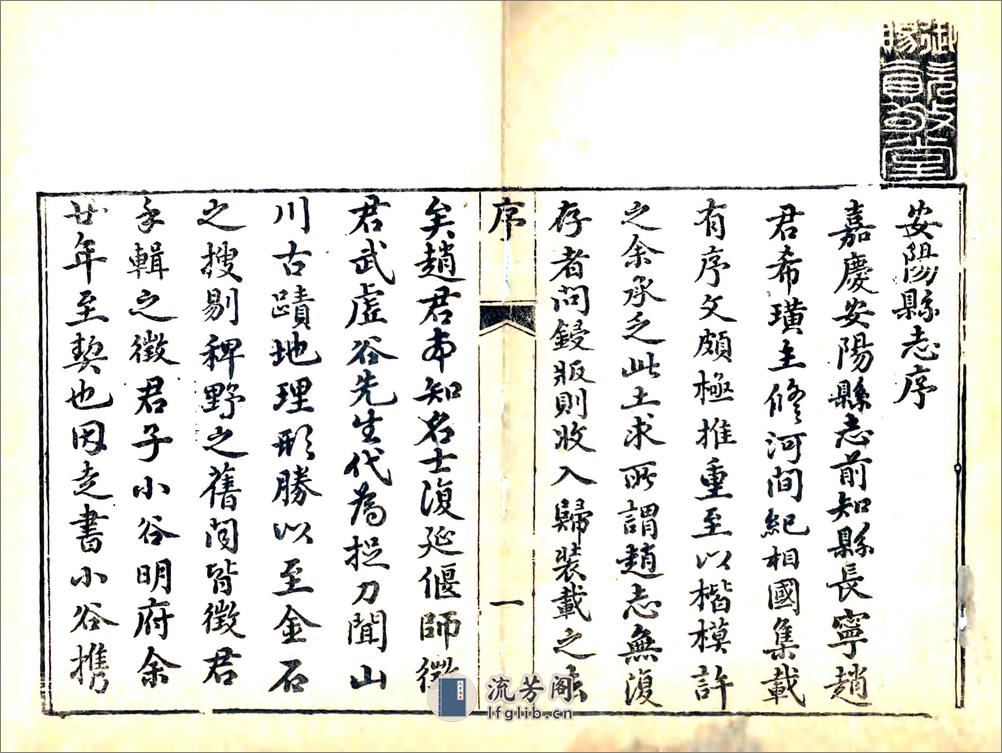 御賜
敬堂
安陽縣志序
嘉慶安陽縣志前知縣長寧趙
君希璜主修河間紀相國集載
有序文頗極推重至以楷模許
之余承乏此土求所謂趙志無復
存者問鋟版則收入歸裝載之去
序
一
矣趙君本知名士復延偃師徵
君武虛谷先生代為捉刀聞山
川古蹟地理形勝以至金石
之搜剔稗野之舊聞皆徵君
手輯之徵君子小谷明府余
廿年至契也因走書小谷攜
流芳阁
lfglib.cn